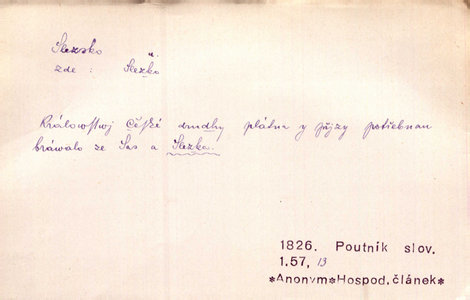 Slezsko n.
zde: Slezko
Králowstwj České druhy plátna y přjzy potřebnau
bráwalo ze Sas a Slezka.
1826. Poutník slov.
1.57, 13
*Anonym*Hospod.článek*